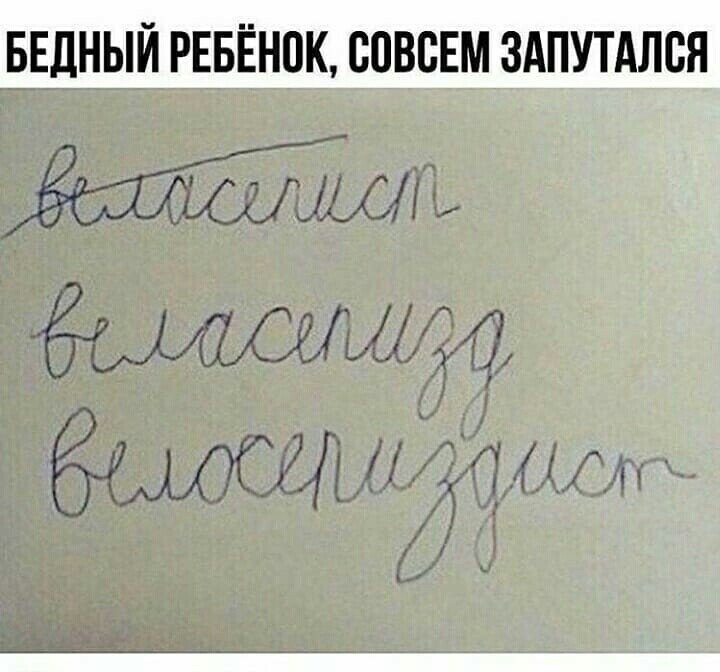 БЕДНЫЙ РЕБЁНОК, СОВСЕМ ЗАПУТАЛСЯ
веласепист
веласепизд
велосепиздист